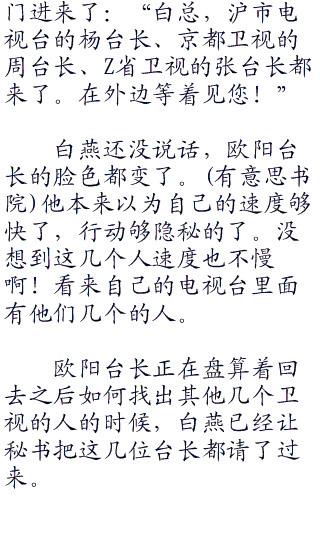 门进来了：“白总，沪市电
视台的杨台长、京都卫视的
周台长、Z省卫视的张台长都
来了。在外边等着见您！”
白燕还没说话，欧阳台
长的脸色都变了。(有意思书
院)他本来以为自己的速度够
快了，行动够隐秘的了。没
想到这几个人速度也不慢
啊！看来自己的电视台里面
有他们几个的人。
欧阳台长正在盘算着回
去之后如何找出其他几个卫
视的人的时候，白燕已经让
秘书把这几位台长都请了过
来。